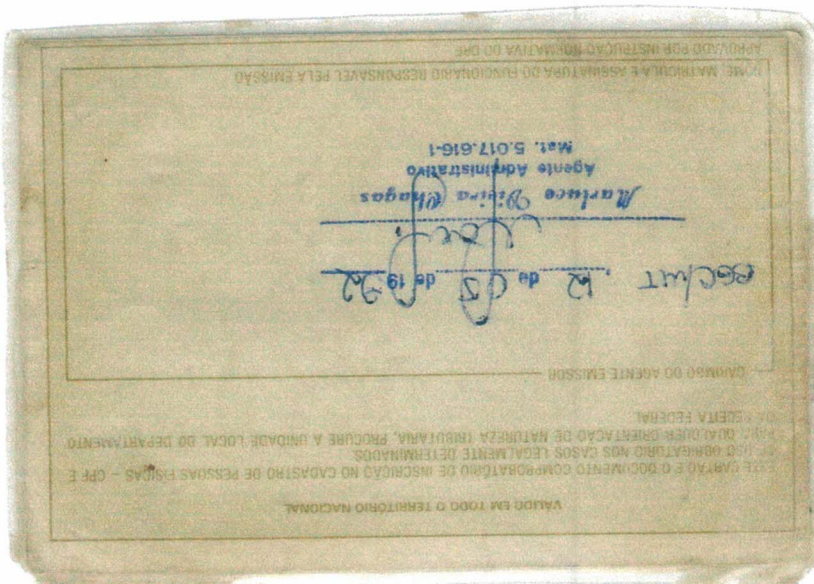 VÁLIDO EM TODO O TERRITÓRIO NACIONAL
ESTE CARTÃO É O DOCUMENTO COMPROBATÓRIO DE INSCRIÇÃO NO CADASTRO DE PESSOAS FÍSICAS - CPF E
DE USO OBRIGATÓRIO NOS CASOS LEGALMENTE DETERMINADOS
PARA QUALQUER ORIENTAÇÃO DE NATUREZA TRIBUTÁRIA, PROCURE A UNIDADE LOCAL DO DEPARTAMENTO
DA RECEITA FEDERAL
CARIMBO DO AGENTE EMISSOR
12 de 05 de 19 92
Marluce Vieira Chagas
Agente Administrativo
Mat. 5.017.616-1
NOME, MATRÍCULA E ASSINATURA DO FUNCIONÁRIO RESPONSÁVEL PELA EMISSÃO
APROVADO POR INSTRUÇÃO NORMATIVA DO DRF